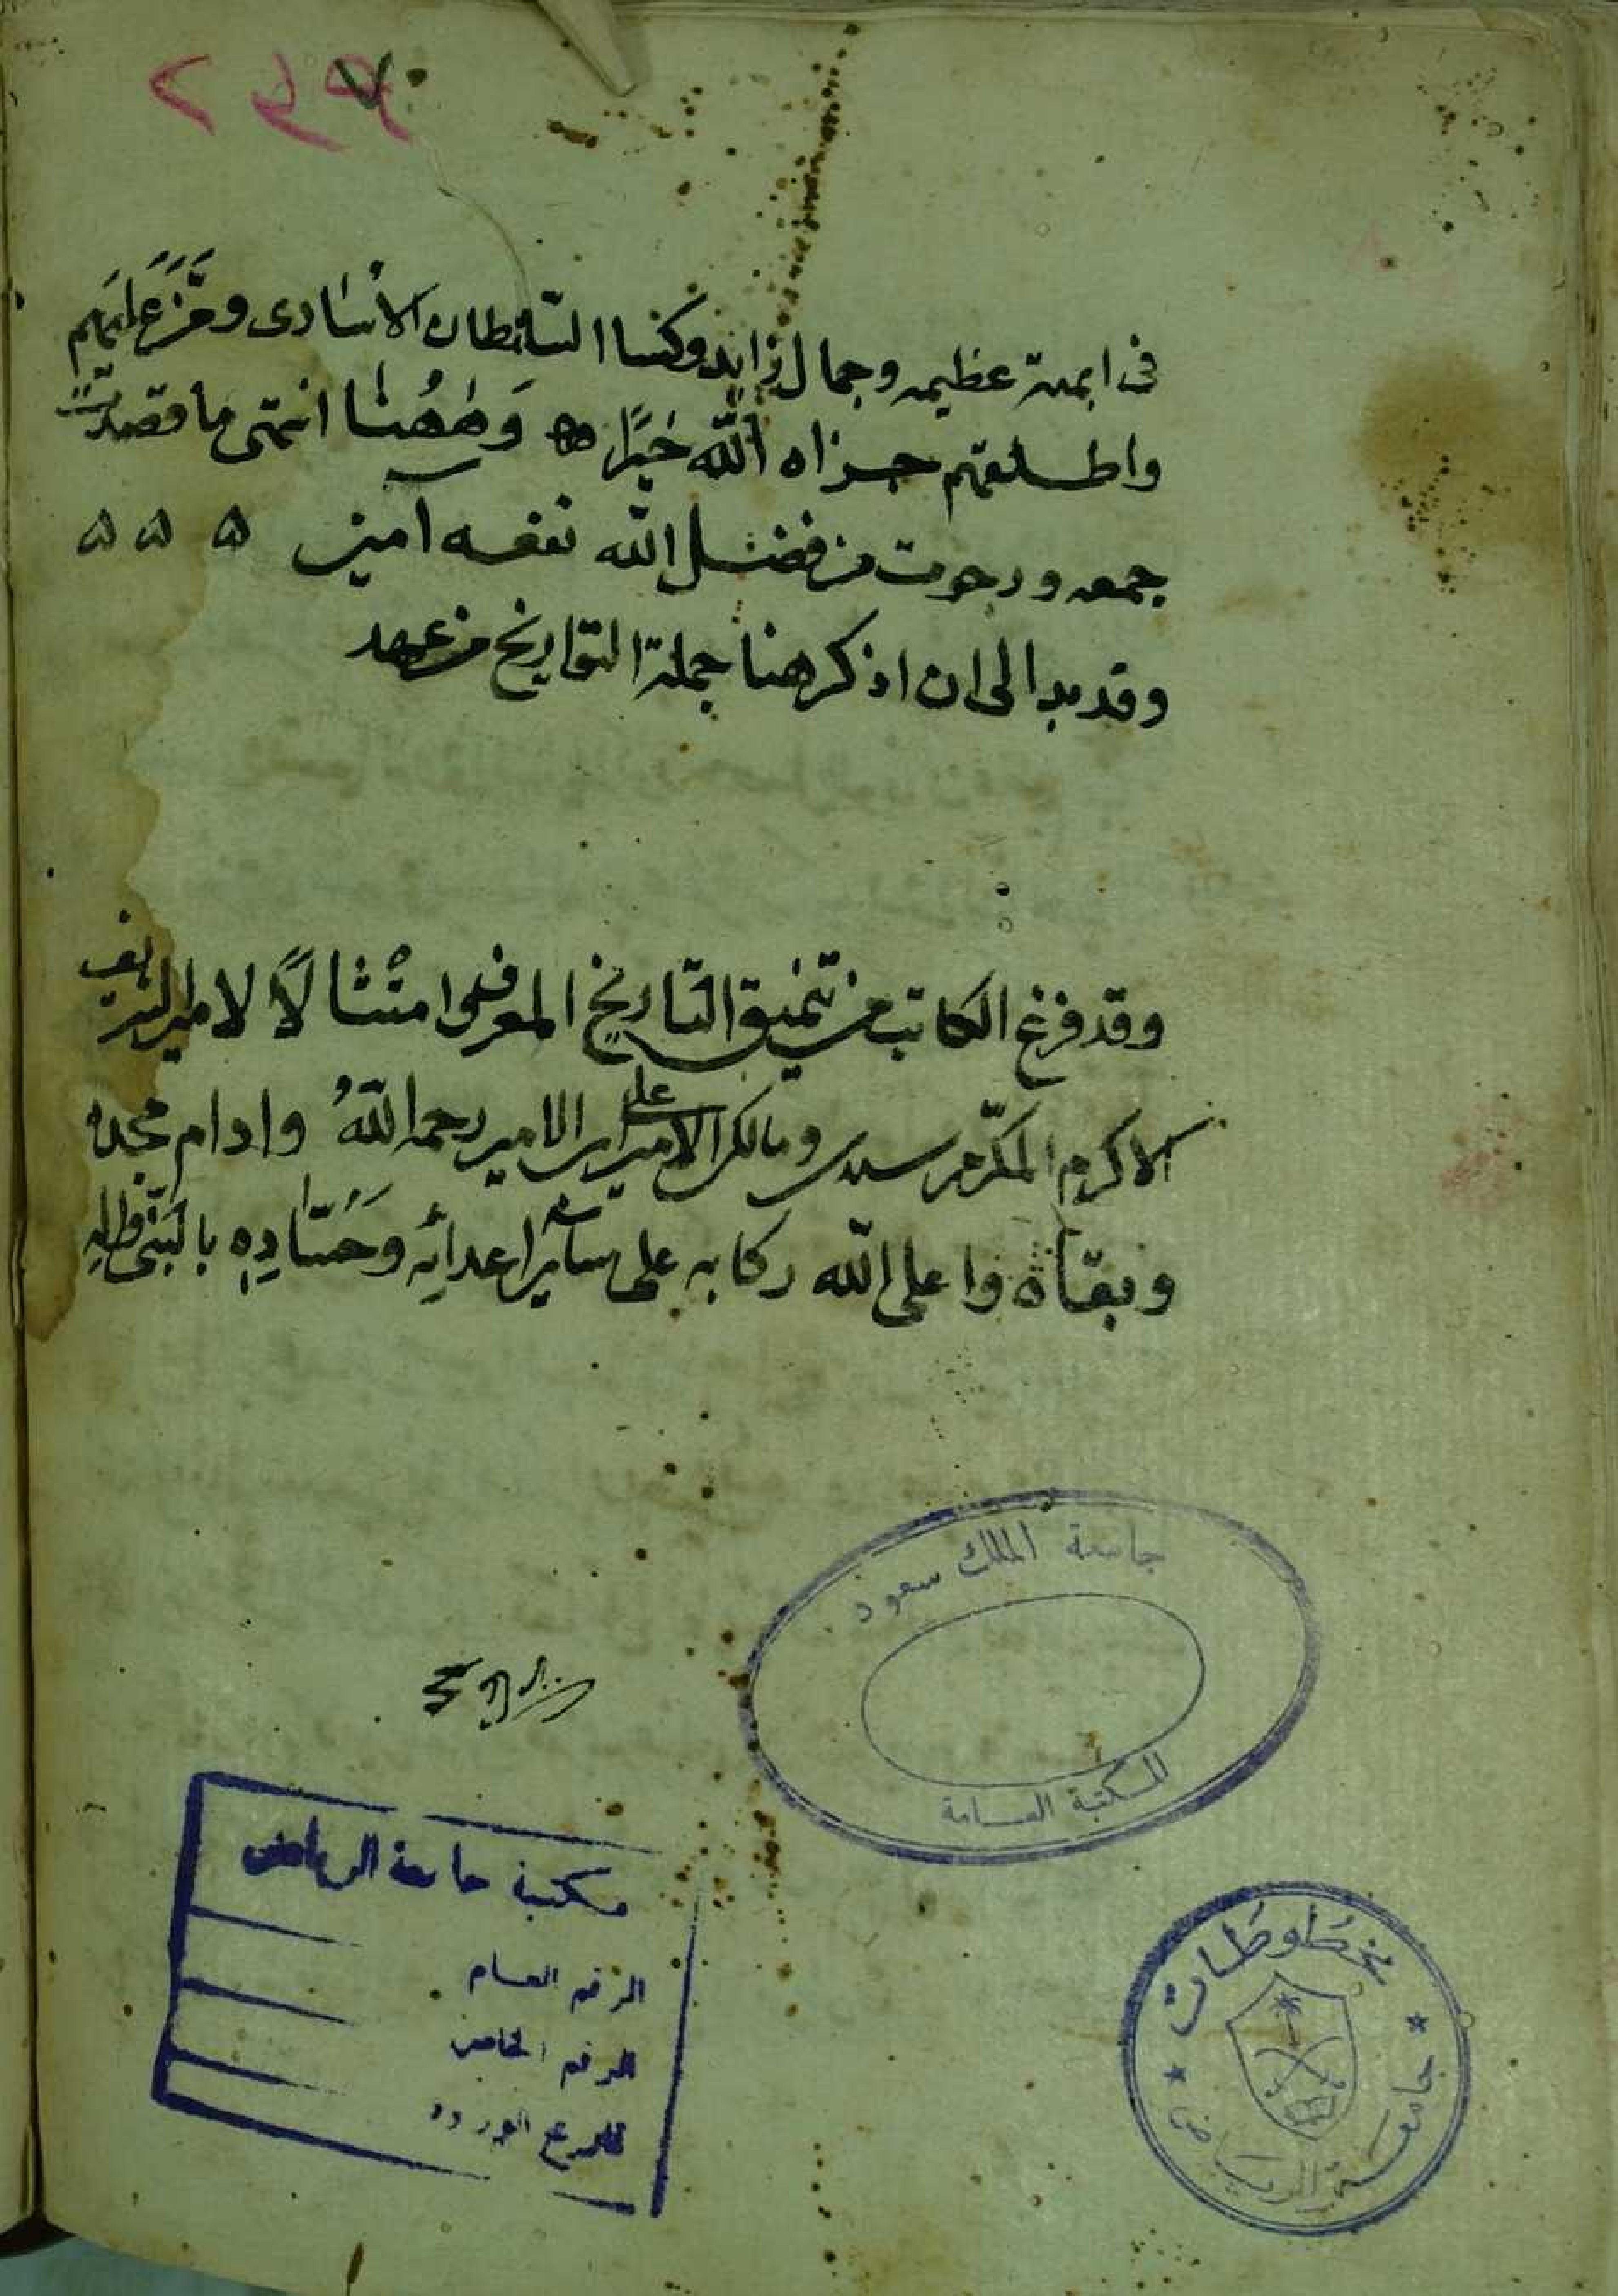 في ابهة عظيمه وجمال زايد وكسا السلطان الاسارى وخلع عليهم
واطلقهم جزاه الله خيرًا وَهٰهُنا انتهى ما قصدت
جمعه ورجوت من فضل الله نفعه آمين ۵ ۵ ۵
وقد بدا لى ان اذكر هنا جملة التواريخ من عهد
وقد فرغ الكاتب من تنميق التاريخ امتثالًا لامر الشريف
الاكرم المكرّم سيدى ومالكى الامير على ابن الامير رحمه الله وادام مجده
وبقاه واعلى الله ركابه على ساير اعدائه وحسّادِهِ بالنبى واله
جامعة الملك سعود
المكتبة العامة
مكتبة جامعة الرياض
الرقم العام
الرقم الخاص
تاريخ الورود
مخطوطات
جامعة الرياض